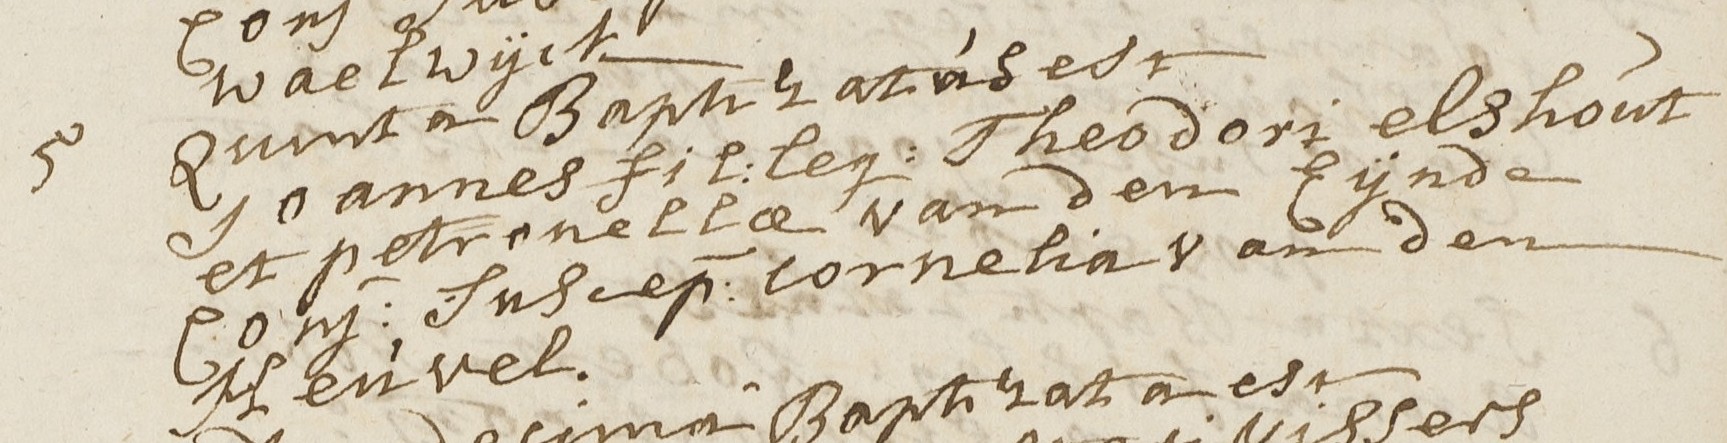 Conj
waelwijck
5 Quinta Baptizatus est
Joannes fil: leg: Theodori elshout
et petronellæ van den Eijnde
Conj: Suscep: Cornelia van den
Heuvel.
Baptizata est
vissers